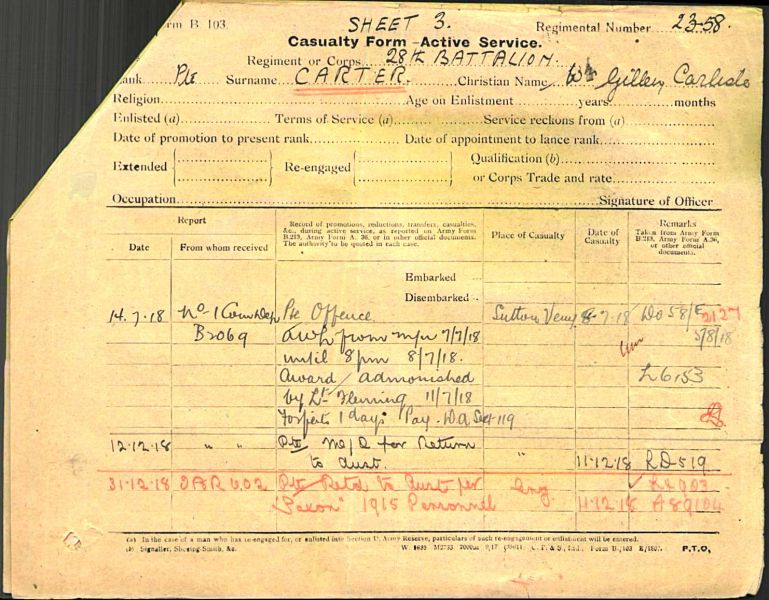 orm B 103. SHEET 3. Regimental Number 23-58.
Casualty Form – Active Service.
Regiment or Corps 28th BATTALION.
Rank Pte Surname CARTER. Christian Name Wm Gillen Carlisle
Religion Age on Enlistment years months
Enlisted (a) Terms of Service (a) Service reckons from (a)
Date of promotion to present rank Date of appointment to lance rank
Extended Re-engaged Qualification (b)
or Corps Trade and rate
Occupation Signature of Officer
Report
Date From whom received
Record of promotions, reductions, transfers, casualties,
&c., during active service, as reported on Army Form
B.213, Army Form A. 36, or in other official documents.
The authority to be quoted in each case.
Place of Casualty
Date of
Casualty
Remarks
Taken from Army Form
B.213, Army Form A.36,
or other official
documents.
Embarked
Disembarked
14.7.18 No-1 Com Dep Pte Offence Sutton Veny 8-7-18 Do 58/E 2127
B2069 AWL from m/n 7/7/18 5/8/18
until 8pm 8/7/18.
Award / admonished L6153
by Lt Fleming 11/7/18
Forfeits 1 days Pay. DA Sect 119
12.12.18 " " Pte M/D for Return
to Aust. " 11.12.18 RD 519
31-12-18 Pte Retd to Aust per Eng
"Saxon" 1915 Personnel 11-12-18
(a) In the case of a man who has re-engaged for, or enlisted into Section D, Army Reserve, particulars of such re-engagement or enlistment will be entered.
(b) Signaller, Shoeing-Smith, &c. Form B./103 E/1807. P.T.O.